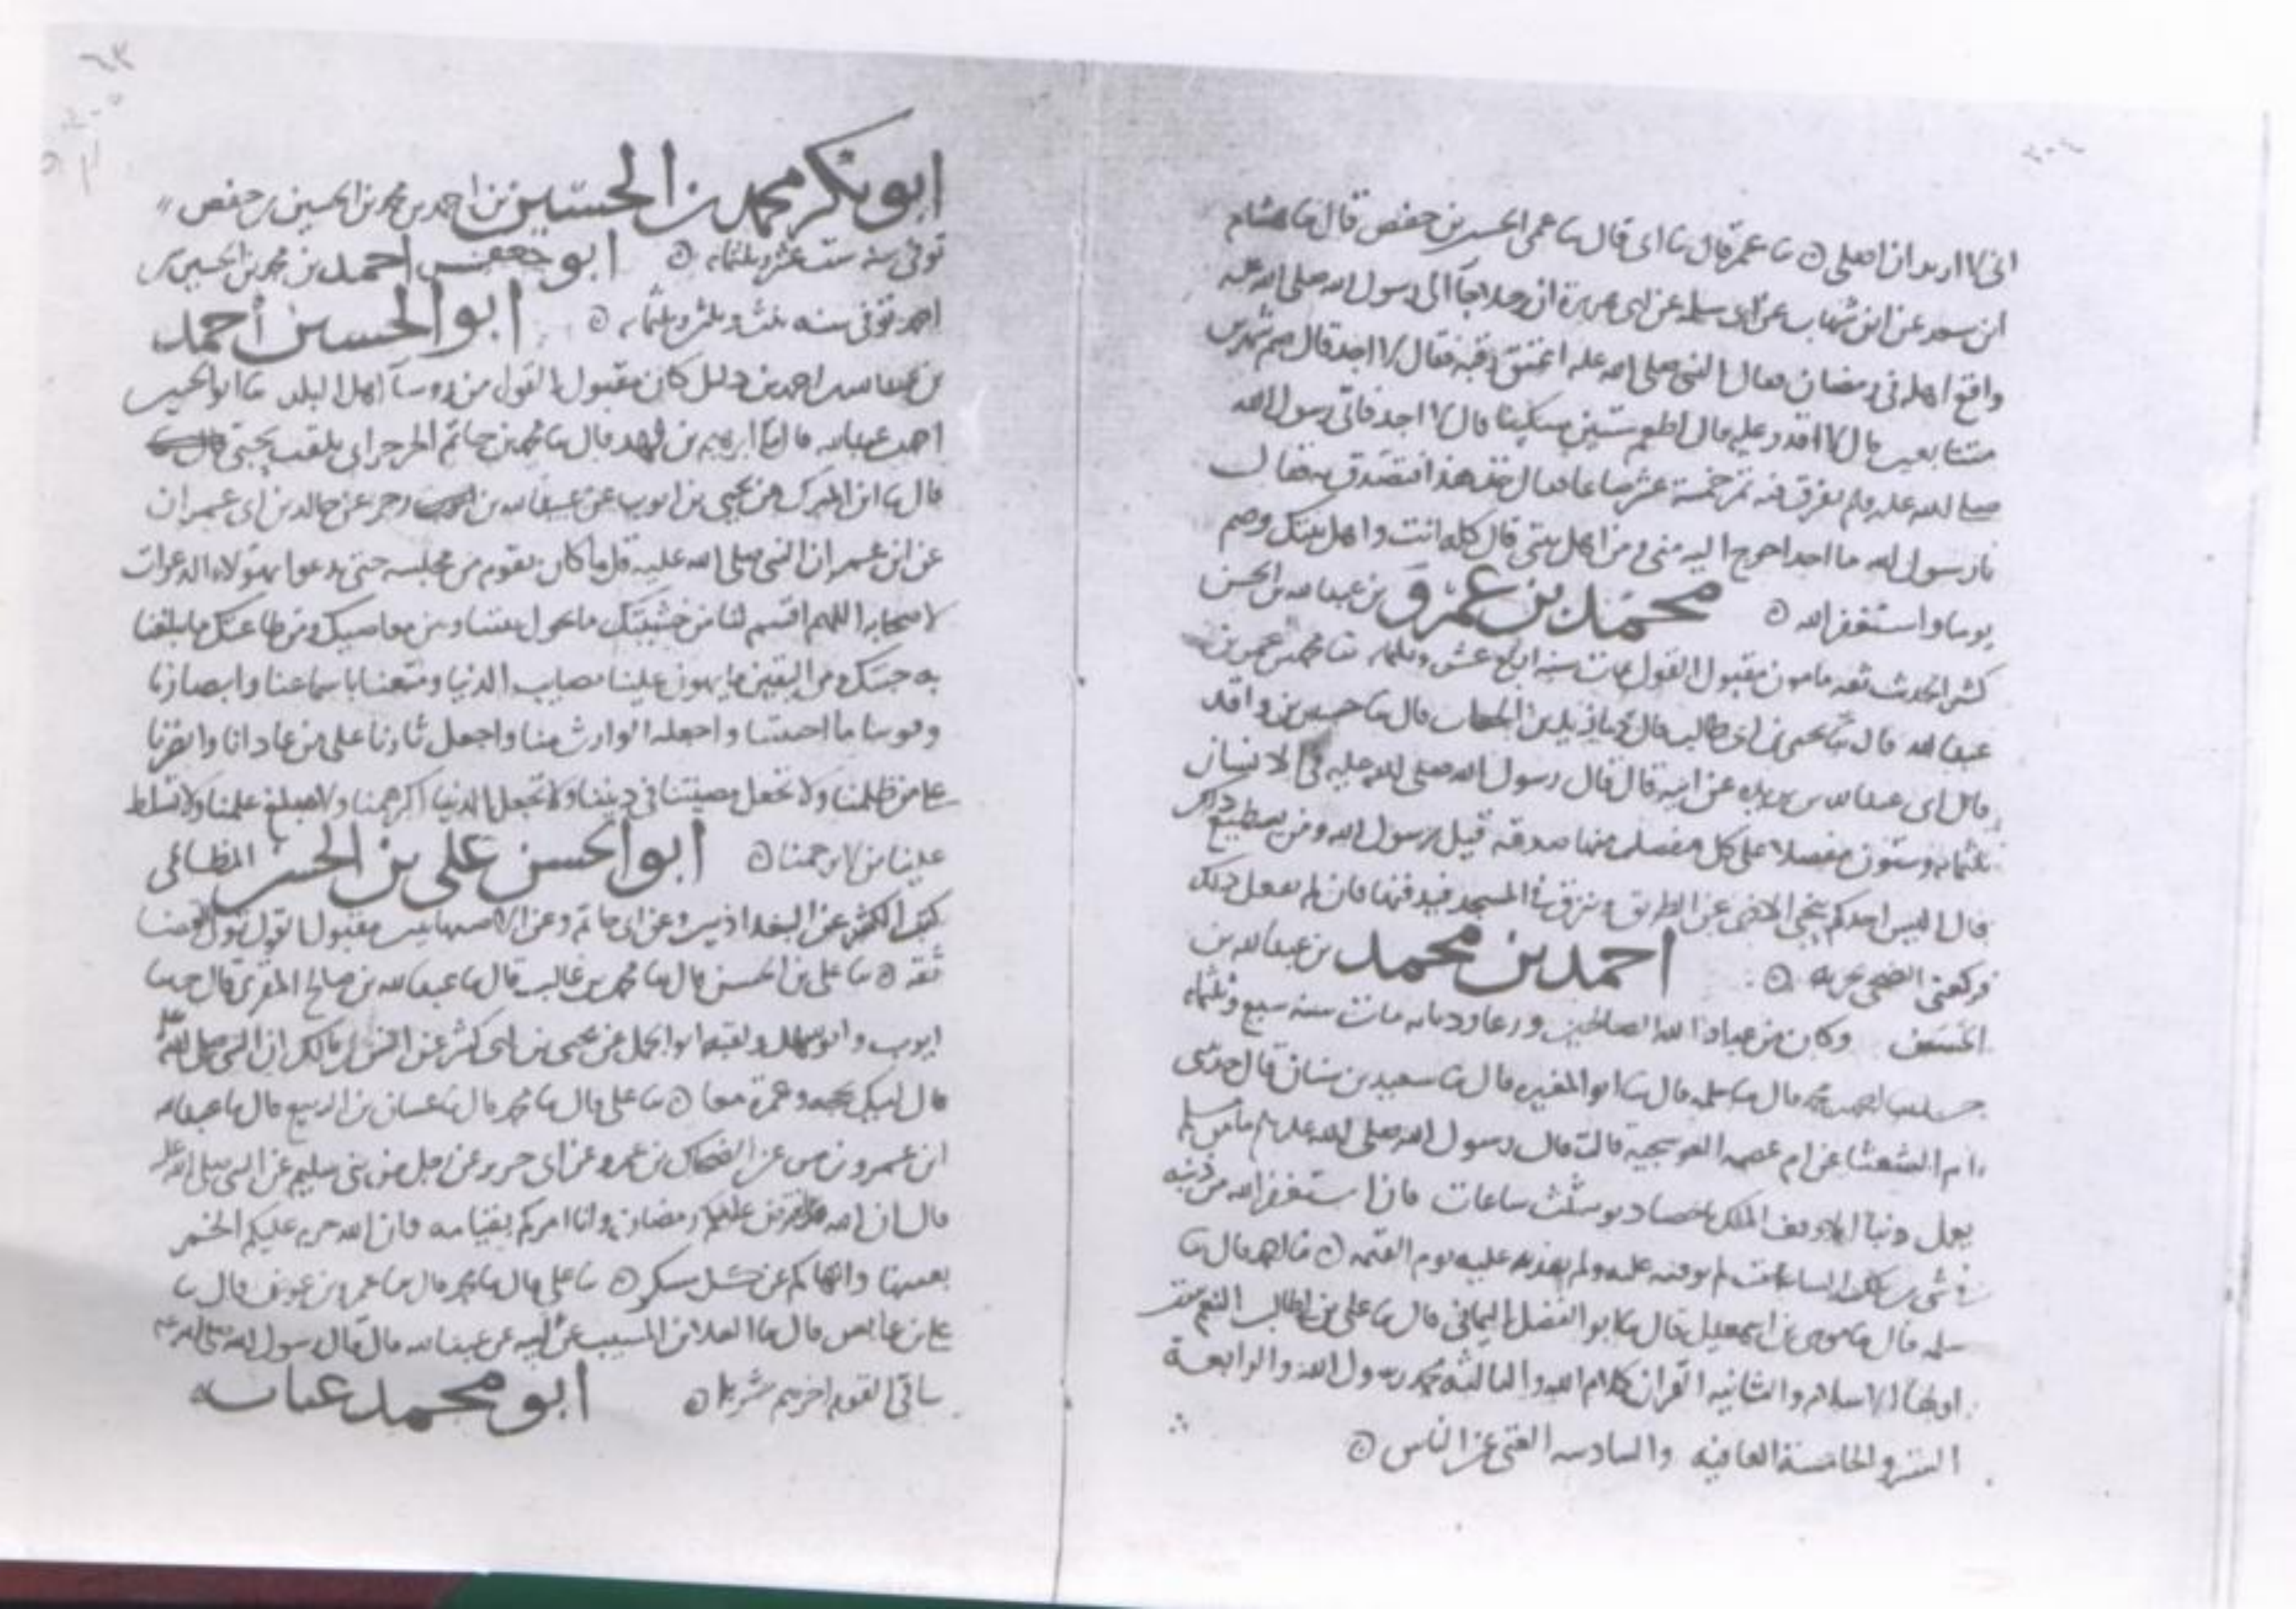 اني لا اريد ان اصلي ۞ ثنا عمرة قال ثنا ابي قال ثنا عمي الحسين بن حفص قال ثنا هشام
ابن سعد عن ابن شهاب عن ابي سلمه عن ابي هريرة ان رجلا جا الى رسول الله صلى الله عليه
واقع اهله في رمضان فقال النبي صلى الله عليه اعتق رقبه فقال لا اجد قال صم شهرين
متتابعين قال لا اقدر عليه قال اطعم ستين مسكينا قال لا اجد فاتي رسول الله
صلى الله عليه وسلم بعرق فيه تمر خمسة عشر صاعا فقال خذ هذا فتصدق به فقال
يا رسول الله ما احد احوج اليه مني ومن اهل بيتي قال كله انت واهل بيتك وصم
يوما واستغفر الله ۞ محمد بن عمرو بن عبد الله بن الحسن
كثير الحديث ثقه مامون مقبول القول مات سنه اربع عشر وثلثمايه ثنا محمد بن عمرو بن
عبد الله قال ثنا يحيى بن ابي طالب قال ثنا زيد بن الحباب قال ثنا حسين بن واقد
قال ابي عبد الله بن بريده عن ابيه قال قال رسول الله صلى الله عليه في الانسان
ثلثمايه وستون مفصلا على كل مفصل منها صدقه قيل يرسول الله ومن يستطيع ذلك
قال اليس احدكم ينحي الاذى عن الطريق ويبزق في المسجد فيدفنها فان لم يفعل ذلك
فركعتي الضحى تجزيه ۞ احمد بن محمد بن عبد الله بن
الحسن وكان من عباد الله الصالحين ورعا وديانه مات سنه سبع وثلثمايه
قال ثنا سلمه قال ثنا ابو المغيره قال ثنا سعيد بن سنان قال حدثتني
ام الشعثا عن ام عصمه العوصيه قالت قال رسول الله صلى الله عليه ما من مسلم
يعمل ذنبا الا وقف الملك باحصا ذنوبه ثلث ساعات فان استغفر الله من ذنبه
في شي من تلك الساعات لم يوقفه عليه ولم يعذبه عليه يوم القيمه ۞ ثنا احمد قال ثنا
سلمه قال ثنا موسى بن اسمعيل قال ثنا ابو الفضل اليماني قال ثنا علي بن ابي طالب النعم ست
اولها الاسلام والثانيه القران كلام الله والثالثه محمد رسول الله والرابعة
الستر والخامسة العافيه والسادسه الغنى عن الناس ۞
ابو بكر محمد بن الحسين بن احمد بن محمد بن الحسين بن حفص
توفي سنه ست عشر وثلثمايه ۞ ابو جعفر احمد بن محمد بن الحسين بن
احمد توفي سنه ثلث وثلثين وثلثمايه ۞ ابو الحسين احمد
بن عبد الله بن احمد بن دليل كان مقبول القول من روسا اهل البلد ثنا ابو الحسين
احمد بن عبد الله قال ثنا ابرهيم بن فهد قال ثنا محمد بن حاتم الجرجراي يلقب بحبي
قال ثنا ابن المبرك عن يحيى بن ايوب عن عبيد الله بن زحر عن خالد بن ابي عمران
عن ابن عمر ان النبي صلى الله عليه قل ما كان يقوم من مجلسه حتى يدعوا بهولاء الدعوات
لاصحابه اللهم اقسم لنا من خشيتك ما يحول بيننا وبين معاصيك ومن طاعتك ما يبلغنا
به جنتك ومن اليقين ما يهون علينا مصايب الدنيا ومتعنا باسماعنا وابصارنا
وقوتنا ما احييتنا واجعله الوارث منا واجعل ثارنا على من عادانا وانصرنا
على من ظلمنا ولا تجعل مصيبتنا في ديننا ولا تجعل الدنيا اكبر همنا ولا مبلغ علمنا ولا تسلط
علينا من لا يرحمنا ۞ ابو الحسن علي بن الحسن المظالمي
كتب الكثير عن البغداذيين وعن ابي حاتم وعن الاصبهانيين مقبول القول
ثقه ۞ ثنا علي بن الحسن قال ثنا محمد بن غالب قال ثنا عبد الله بن صالح المقري قال حدثنا
ايوب وابو سهل ولقبه ابو الجمل عن يحيى بن ابي كثير عن انس بن مالك ان النبي صلى الله عليه
قال لبيك بحجه وعمرة معا ۞ ثنا علي قال ثنا محمد قال ثنا غسان بن الربيع قال ثنا عبد الله
ابن عمرو بن عن الضحاك بن عمرو عن ابي جرير عن رجل من بني سليم عن النبي صلى الله عليه
قال ان الله افترض عليكم رمضان وانا امركم بقيامه فان الله حرم عليكم الخمر
بعينها وانهاكم عن كل مسكر ۞ ثنا علي قال ثنا محمد قال ثنا عمرو بن عون قال ثنا
علي بن عابس قال ثنا العلا بن المسيب عن ابيه عن عبد الله قال قال رسول الله صلى الله عليه
ساقي القوم اخرهم شربا ۞ ابو محمد عبد الله